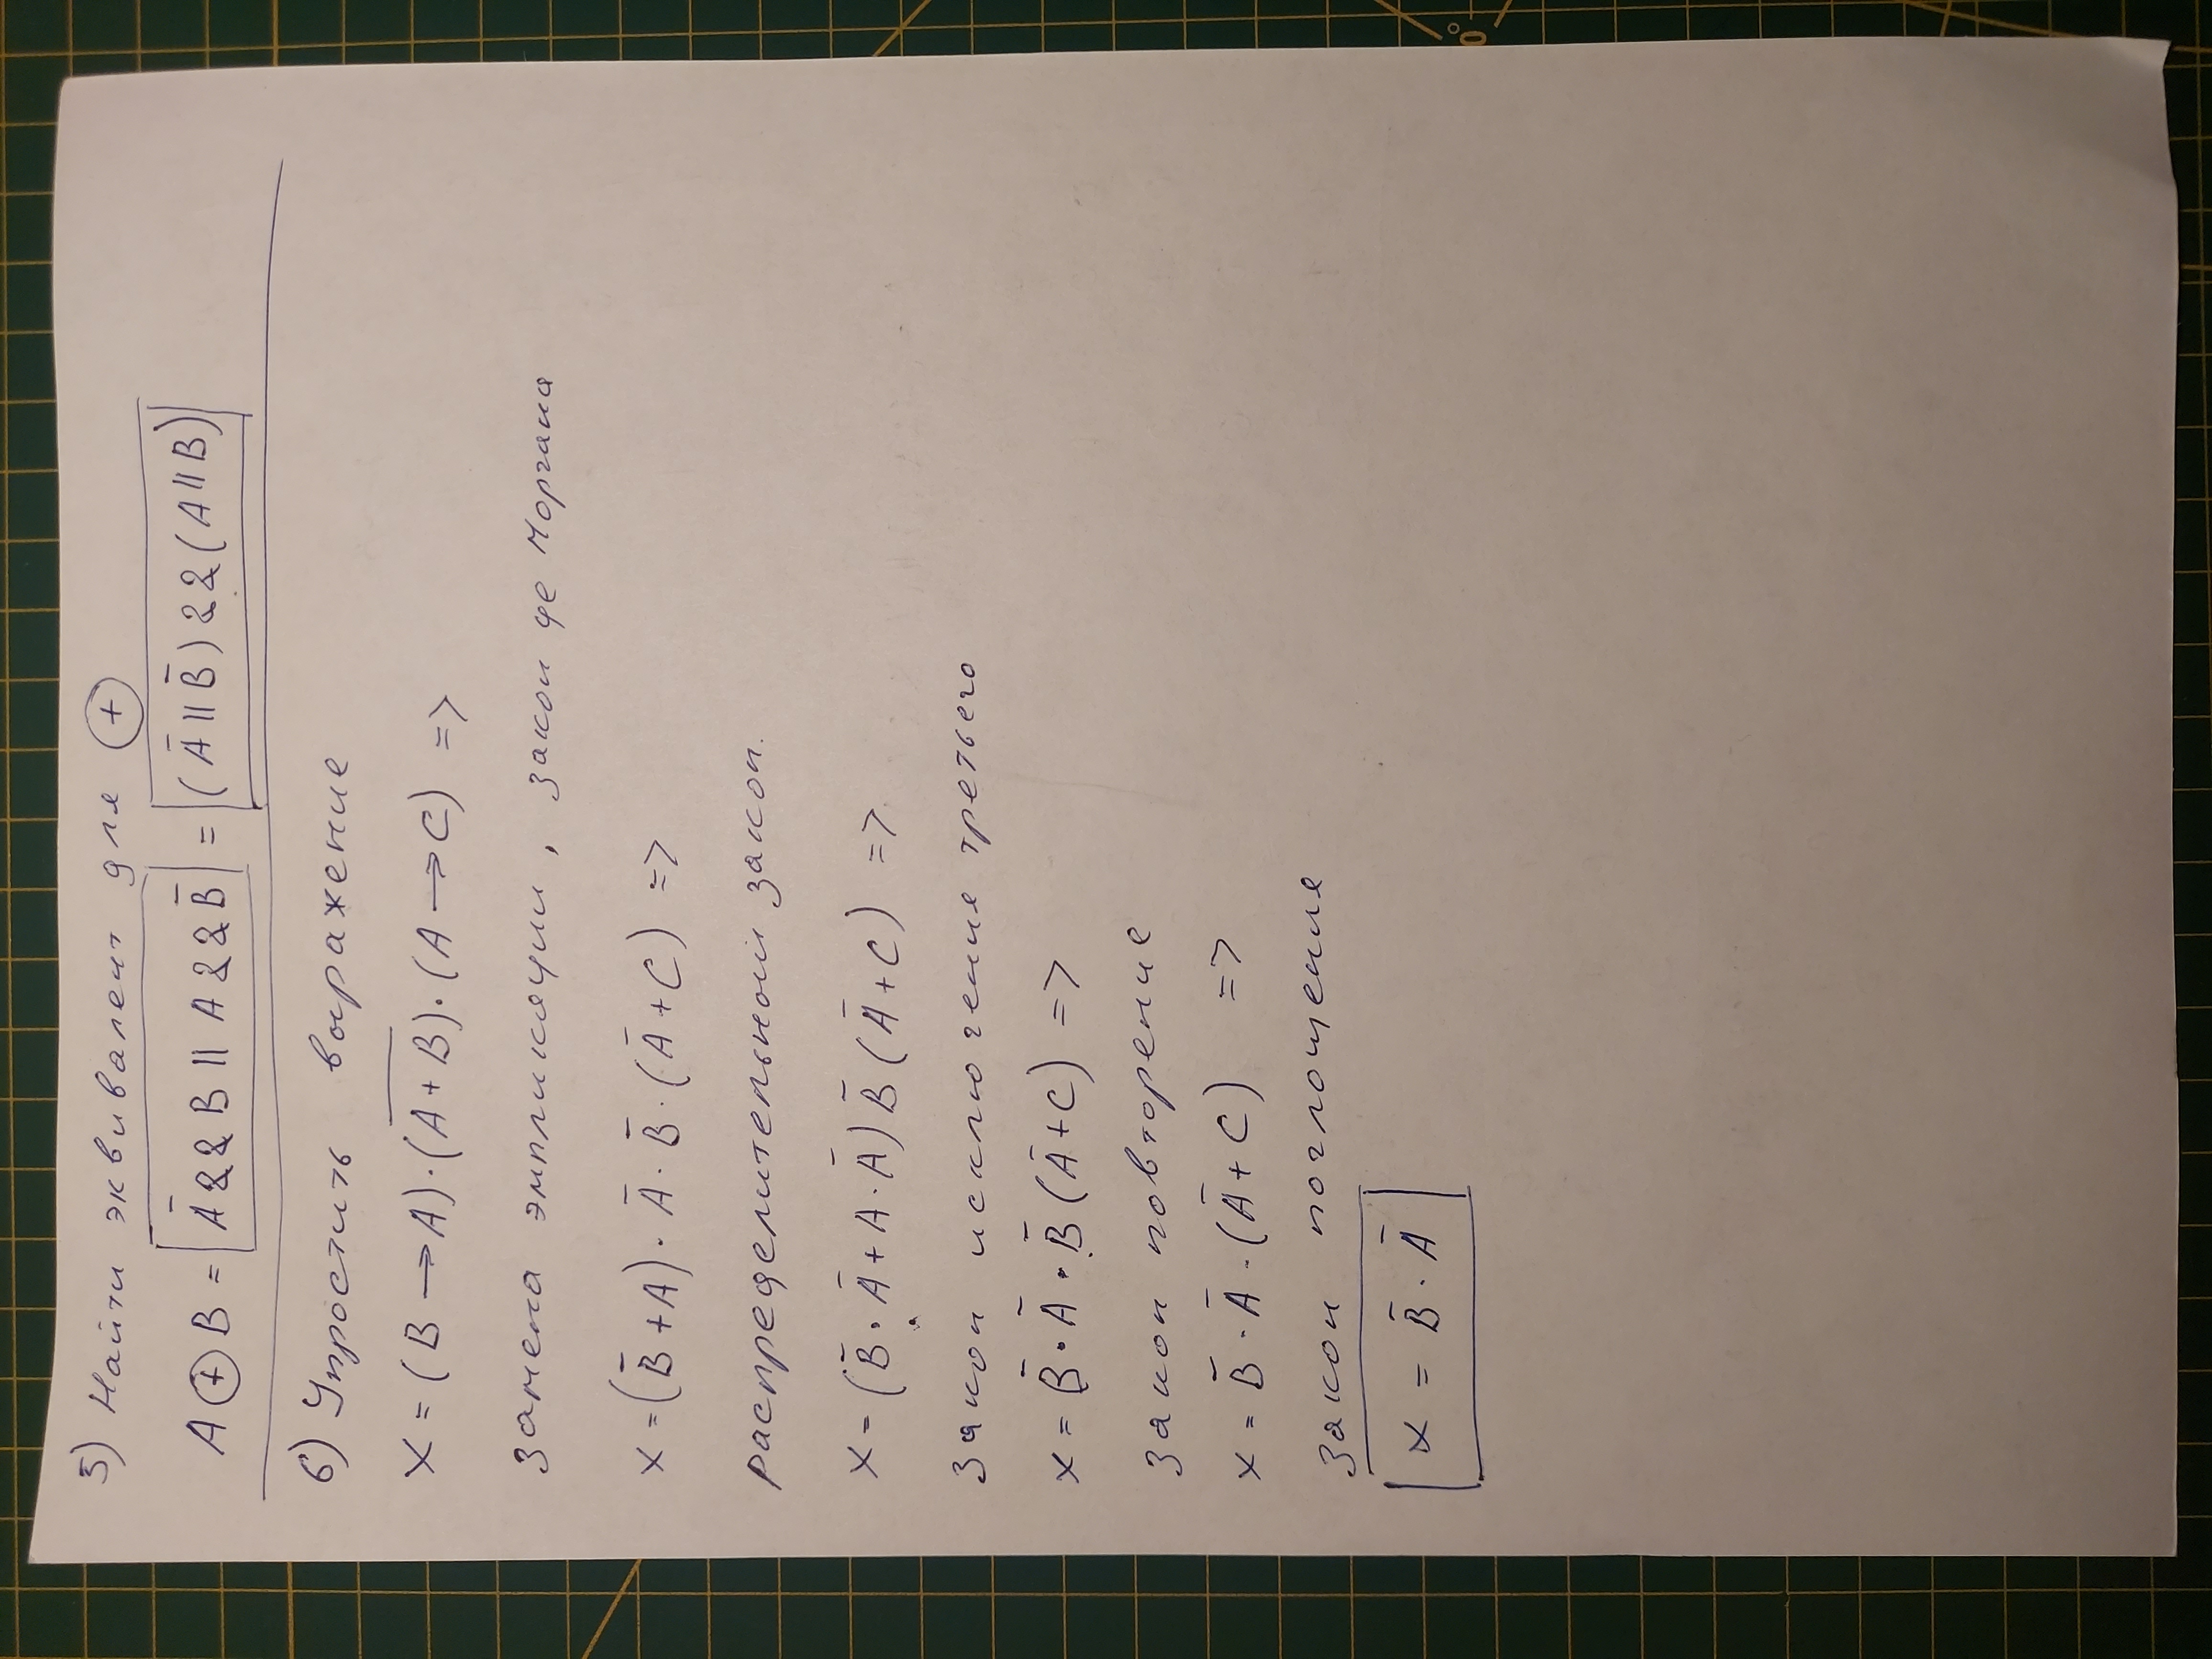 5) Найти эквивалент для ⊕
A ⊕ B = Ā && B || A && B̄ = (Ā || B̄) && (A || B)
6) Упростить выражение
X = (B → A) · (A̅ ̅+̅ ̅B̅) · (A → C) =>
замена эмпликации, закон де Моргана
X = (B̄ + A) · Ā · B̄ · (Ā + C) =>
распределительный закон.
X = (B̄ · Ā + A · Ā) B̄ (Ā + C) =>
Закон исключения третьего
X = B̄ · Ā · B̄ (Ā + C) =>
Закон повторение
X = B̄ · Ā · (Ā + C) =>
Закон поглощения
X = B̄ · Ā
0°